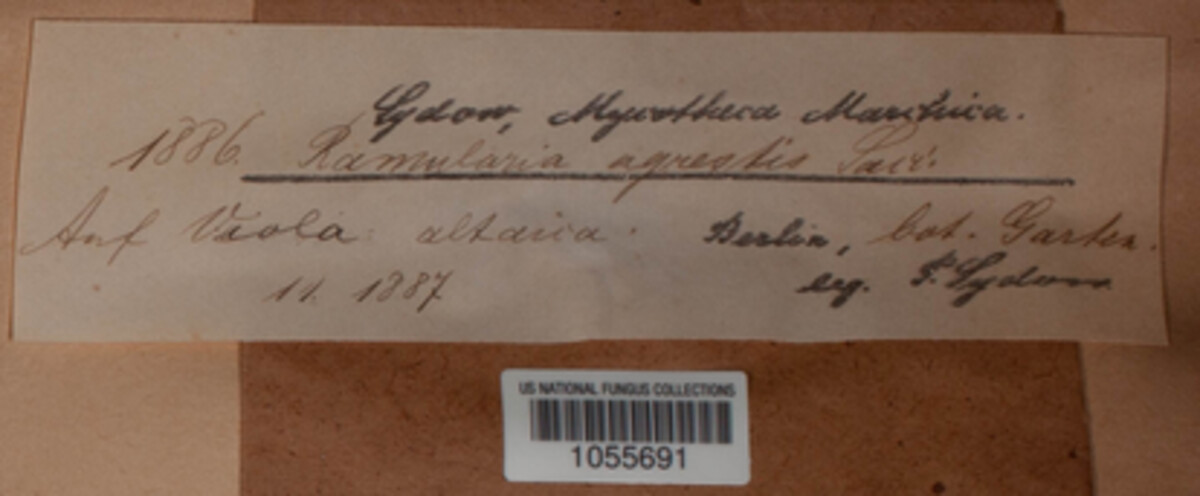 Sydow, Mycotheca Marchica.
1886. Ramularia agrestis Sacc.
Auf Viola altaica. Berlin, bot. Garten.
11. 1887 leg. P. Sydow
US NATIONAL FUNGUS COLLECTIONS
1055691